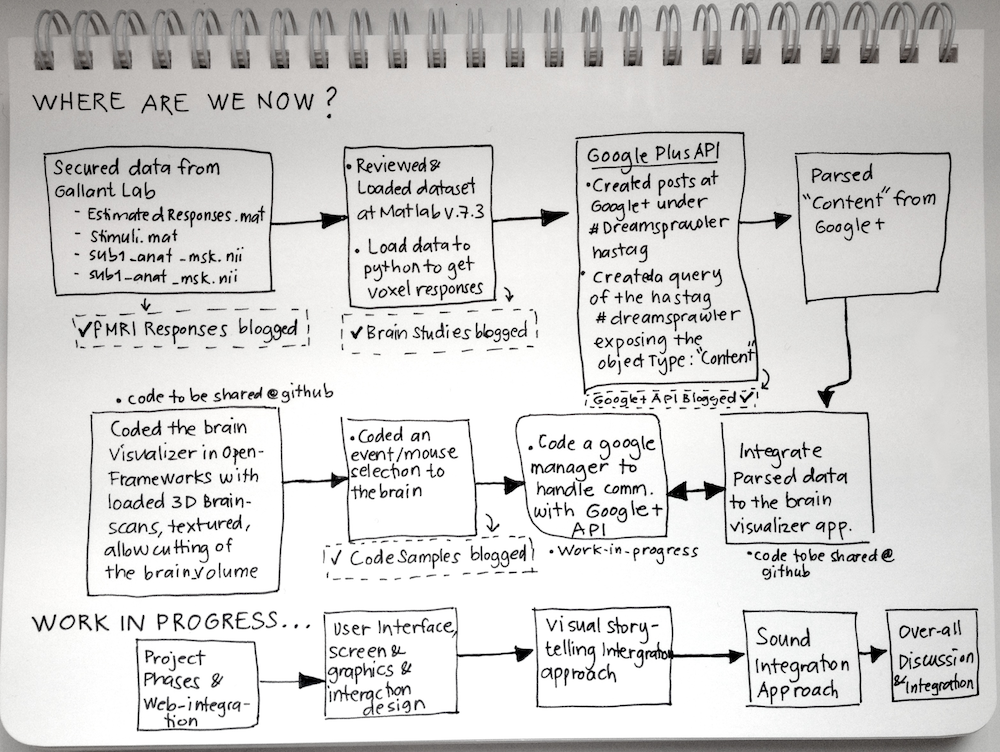 WHERE ARE WE NOW?
Secured data from
Gallant Lab
- EstimatedResponses.mat
- Stimuli.mat
- sub1_anat_msk.nii
- sub1_anat_msk.nii
✓fMRI Responses blogged
• Reviewed &
Loaded dataset
at Matlab v.7.3
• Load data to
python to get
voxel responses
✓ Brain Studies blogged
Google Plus API
• Created posts at
Google+ under
#Dreamsprawler
hastag
• Created a query
of the hastag
#dreamsprawler
exposing the
objectType: "Content"
Google+ API Blogged ✓
Parsed
"Content" from
Google+
• code to be shared @ github
Coded the brain
Visualizer in Open-
Frameworks with
loaded 3D Brain-
scans, textured,
allow cutting of
the brain volume
• Coded an
event/mouse
selection to
the brain
✓ Code Samples blogged
• Code a google
manager to
handle comm.
with Google+
API
• Work-in-progress
Integrate
Parsed data
to the brain
visualizer app.
• code to be shared @
github
WORK IN PROGRESS...
Project
Phases &
Web-integra-
tion
User Interface,
screen &
graphics &
interaction
design
Visual story-
telling Intergration
approach
Sound
Integration
Approach
Over-all
Discussion
& Integration